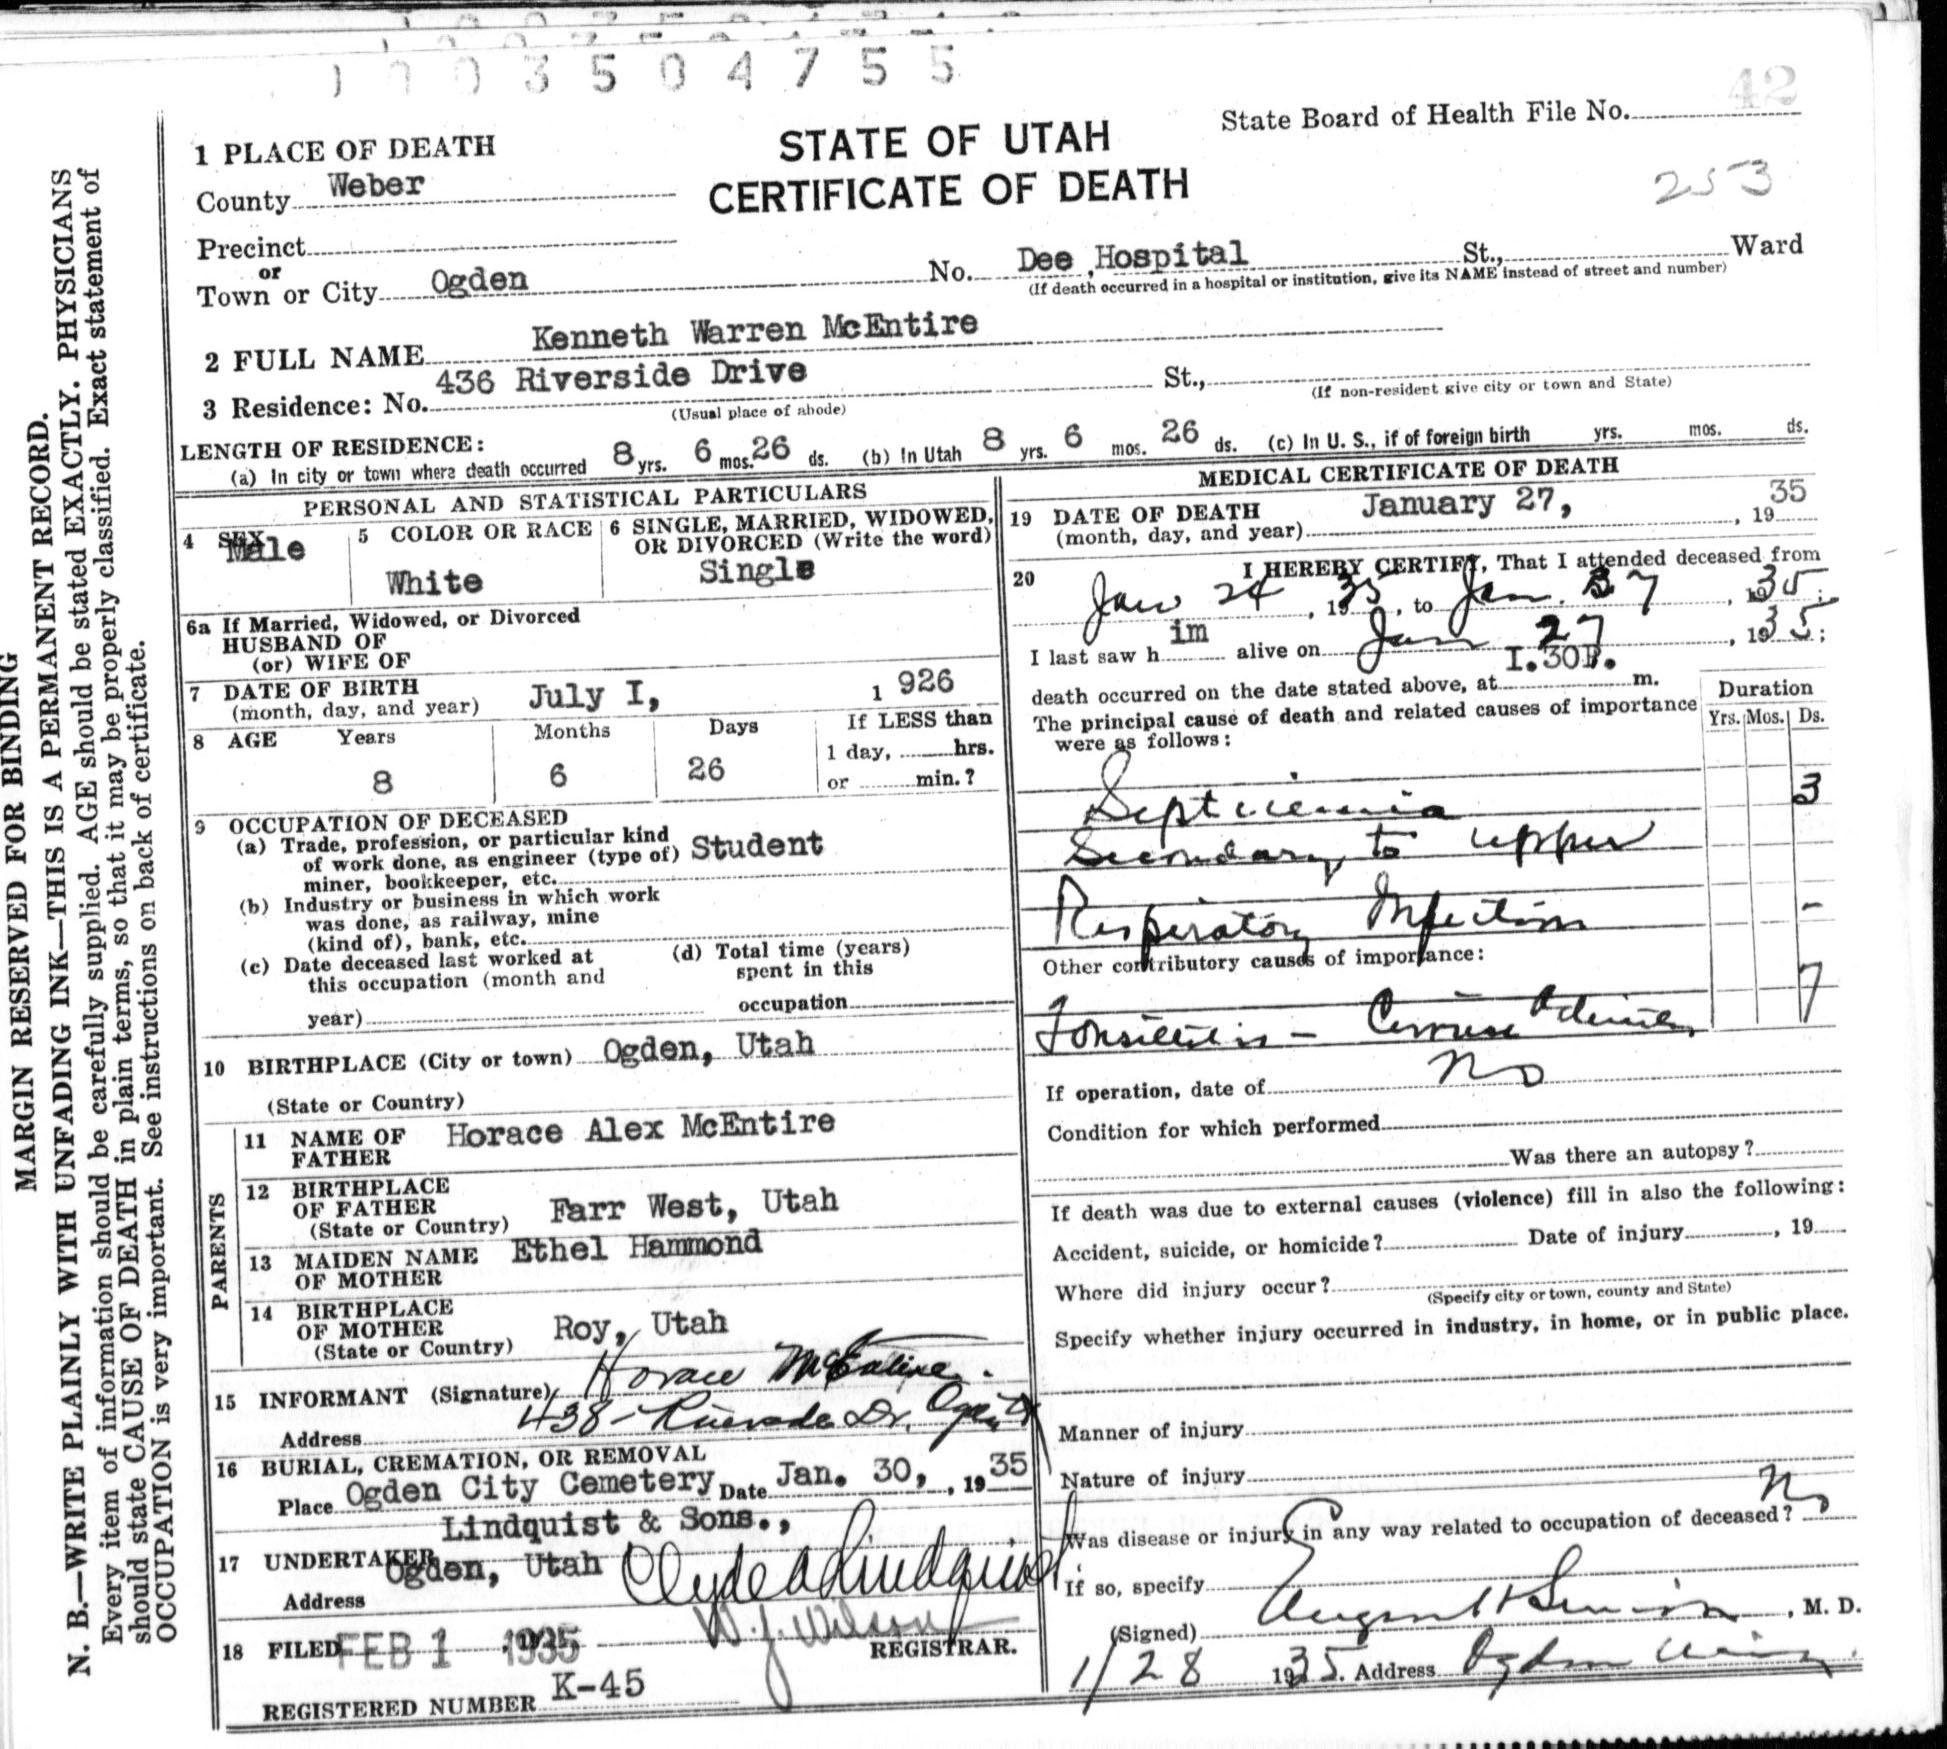 1003504755
42
State Board of Health File No.
253
STATE OF UTAH
CERTIFICATE OF DEATH
1 PLACE OF DEATH
County Weber
Precinct
or
Town or City Ogden No. Dee Hospital St., Ward
(If death occurred in a hospital or institution, give its NAME instead of street and number)
2 FULL NAME Kenneth Warren McEntire
3 Residence: No. 436 Riverside Drive St.,
(Usual place of abode) (If non-resident give city or town and State)
LENGTH OF RESIDENCE:
(a) In city or town where death occurred 8 yrs. 6 mos. 26 ds. (b) In Utah 8 yrs. 6 mos. 26 ds. (c) In U. S., if of foreign birth yrs. mos. ds.
PERSONAL AND STATISTICAL PARTICULARS
4 SEX Male
5 COLOR OR RACE
White
6 SINGLE, MARRIED, WIDOWED,
OR DIVORCED (Write the word)
Single
6a If Married, Widowed, or Divorced
HUSBAND OF
(or) WIFE OF
7 DATE OF BIRTH
(month, day, and year) July I, 1926
8 AGE Years Months Days If LESS than
1 day, hrs.
8 6 26 or min.?
9 OCCUPATION OF DECEASED
(a) Trade, profession, or particular kind
of work done, as engineer (type of) Student
miner, bookkeeper, etc.
(b) Industry or business in which work
was done, as railway, mine
(kind of), bank, etc.
(c) Date deceased last worked at
this occupation (month and
year)
(d) Total time (years)
spent in this
occupation
10 BIRTHPLACE (City or town) Ogden, Utah
(State or Country)
PARENTS
11 NAME OF
FATHER Horace Alex McEntire
12 BIRTHPLACE
OF FATHER
(State or Country) Farr West, Utah
13 MAIDEN NAME
OF MOTHER Ethel Hammond
14 BIRTHPLACE
OF MOTHER
(State or Country) Roy, Utah
15 INFORMANT (Signature) Horace McEntire
Address 438 - Riverside Dr. Ogden
16 BURIAL, CREMATION, OR REMOVAL
Place Ogden City Cemetery Date Jan. 30, , 1935
Lindquist & Sons.,
17 UNDERTAKER
Address Ogden, Utah Clyde A Lindquist
18 FILED FEB 1 1935 W. J. Wilson REGISTRAR.
REGISTERED NUMBER K-45
MEDICAL CERTIFICATE OF DEATH
19 DATE OF DEATH January 27, , 1935
(month, day, and year)
20 I HEREBY CERTIFY, That I attended deceased from
Jan 24, 1935, to Jan. 27, 1935;
I last saw him alive on Jan 27, 1935;
death occurred on the date stated above, at I.30P. m.
The principal cause of death and related causes of importance
were as follows:
Duration
Yrs. Mos. Ds.
Septicemia 3
Secondary to upper
Respiratory Infection -
Other contributory causes of importance:
7
Tonsillitis -
If operation, date of No
Condition for which performed
Was there an autopsy?
If death was due to external causes (violence) fill in also the following:
Accident, suicide, or homicide? Date of injury , 19
Where did injury occur?
(Specify city or town, county and State)
Specify whether injury occurred in industry, in home, or in public place.
Manner of injury
Nature of injury
Was disease or injury in any way related to occupation of deceased? No
If so, specify
(Signed) , M. D.
1/28 1935. Address Ogden
MARGIN RESERVED FOR BINDING
N. B.—WRITE PLAINLY WITH UNFADING INK—THIS IS A PERMANENT RECORD.
Every item of information should be carefully supplied. AGE should be stated EXACTLY. PHYSICIANS
should state CAUSE OF DEATH in plain terms, so that it may be properly classified. Exact statement of
OCCUPATION is very important. See instructions on back of certificate.